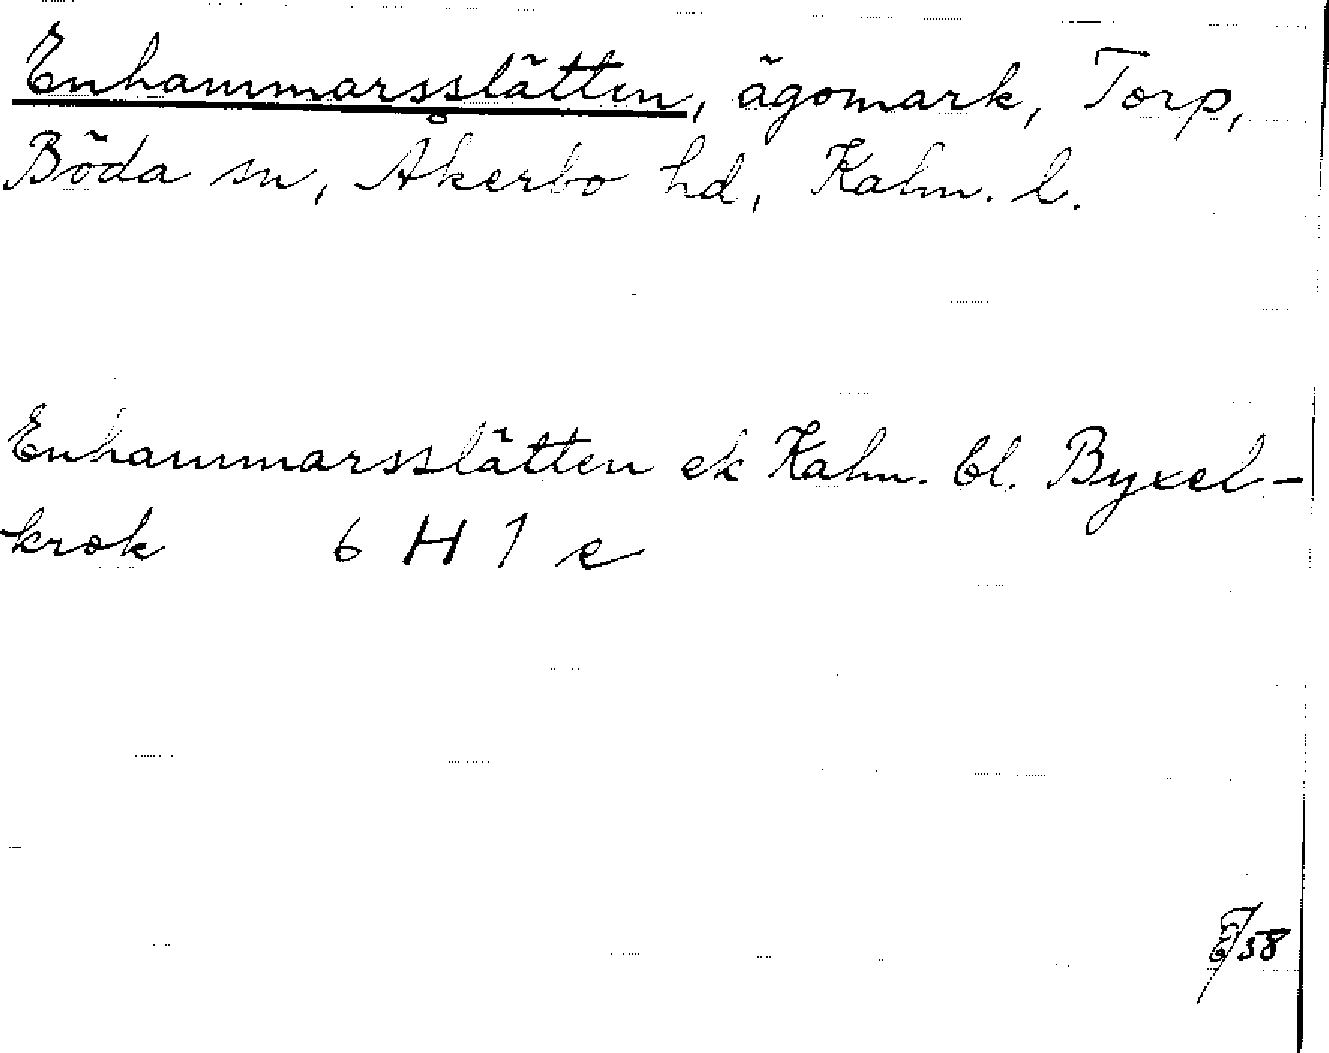 Enhammarsslätten, ägomark, Torp,
Böda sn, Åkerbo hd, Kalm. l.
Enhammarsslätten ek Kalm. bl. Byxel-
krok 6 H 1 e
58